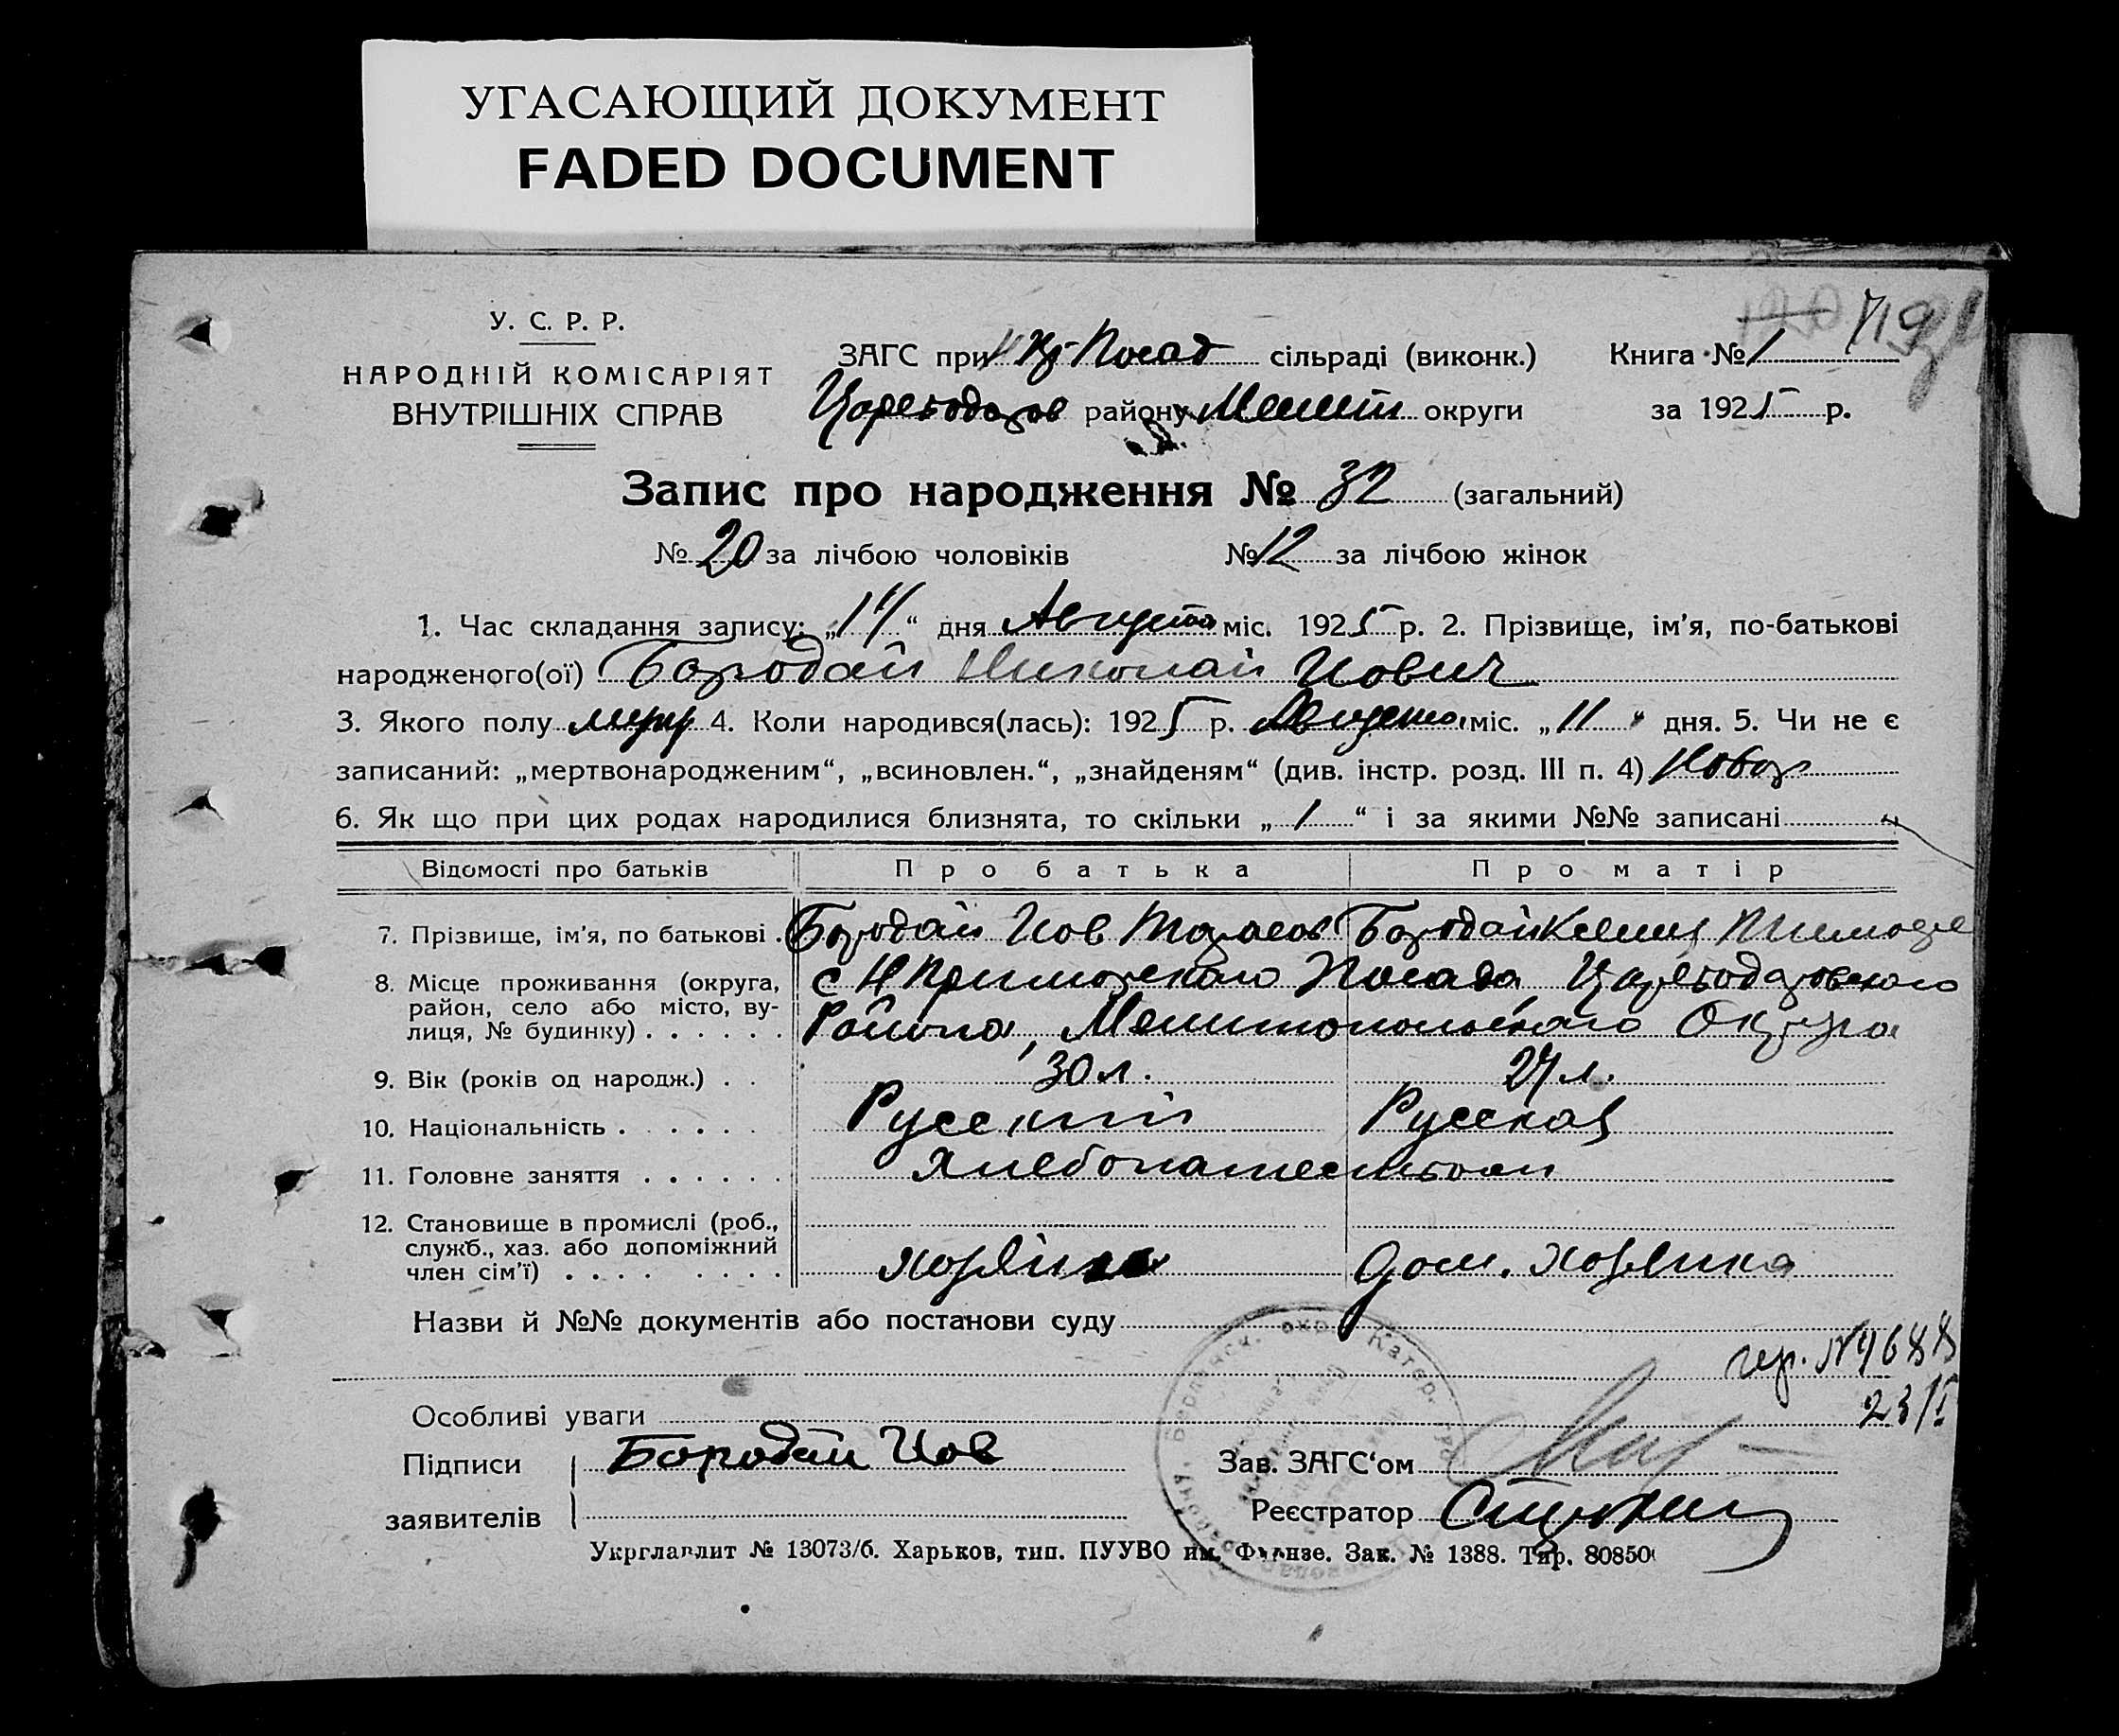 УГАСАЮЩИЙ ДОКУМЕНТ
FADED DOCUMENT
У. С. Р. Р.
НАРОДНІЙ КОМІСАРІЯТ
ВНУТРІШНІХ СПРАВ
ЗАГС при Посад сільраді (виконк.) Книга № 1
району Мелит округи за 1925 р.
Запис про народження № 32 (загальний)
№ 20 за лічбою чоловіків № 12 за лічбою жінок
1. Час складання запису: „14“ дня Августа міс. 1925 р. 2. Прізвище, ім'я, по-батькові
народженого(ої) Бородай Николай Иович
3. Якого полу муж 4. Коли народився(лась): 1925 р. Августа міс. „11“ дня. 5. Чи не є
записаний: „мертвонародженим“, „всиновлен.“, „знайденям“ (див. інстр. розд. III п. 4)
6. Як що при цих родах народилися близнята, то скільки „1“ і за якими №№ записані „
Відомості про батьків Про батька Про матір
7. Прізвище, ім'я, по батькові . Бородай Иов Тарасов Бородай Ксения
8. Місце проживання (округа, район, село або місто, вулиця, № будинку) . . . . . . с Н Приморского Посада, Цареводаровского
Района, Мелитопольского Округа
9. Вік (років од народж.) . . 30 л. 27 л.
10. Національність . . . . . . Русский Русская
11. Головне заняття . . . . . . Хлебопашество
12. Становище в промислі (роб., служб., хаз. або допоміжний член сім'ї) . . . . . . . . хозяин дом. хозяйка
Назви й №№ документів або постанови суду
Особливі уваги
23/I
Підписи заявителів Бородай Иов
Зав. ЗАГС'ом
Реєстратор
Укрглавлит № 13073/б. Харьков, тип. ПУУВО им. Фрунзе. Зак. № 1388. Тир. 80850